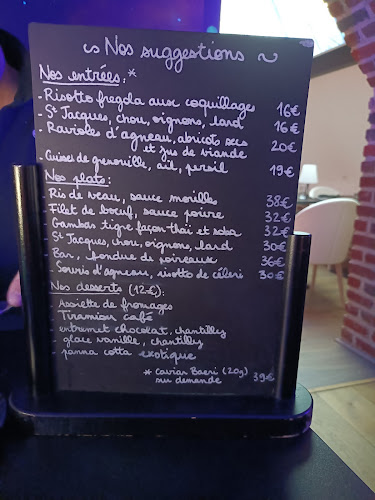 Nos suggestions
Nos entrées :*
- Risotto fregola aux coquillages 16€
- St Jacques, chou, oignons, lard 16€
- Ravioles d'agneau, abricots secs
et jus de viande 20€
- Cuisses de grenouille, ail, persil 19€
Nos plats :
- Ris de veau, sauce morilles 38€
- Filet de boeuf, sauce poivre 32€
- Gambas tigre façon thaï et soba 32€
- St Jacques, chou, oignons, lard 30€
- Bar, fondue de poireaux 36€
- Souris d'agneau, risotto de céleri 30€
Nos desserts (12€) :
- Assiette de fromages
- Tiramisu café
- entremet chocolat, chantilly
- glace vanille, chantilly
- panna cotta exotique
* Caviar Baeri (20g)
sur demande 39€